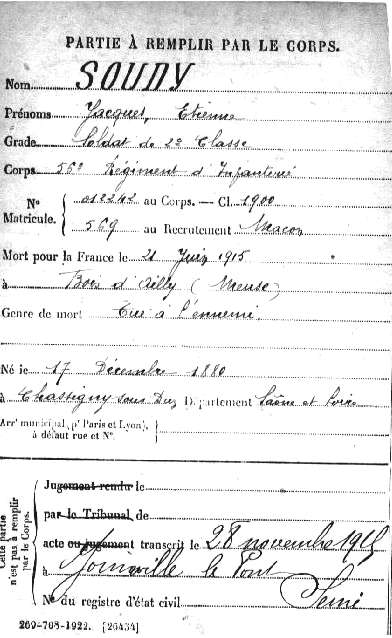 PARTIE À REMPLIR PAR LE CORPS.
Nom SOUDY
Prénoms Jacques, Etienne
Grade Soldat de 2e Classe
Corps 56e Régiment d'Infanterie
N° Matricule. { 012242 au Corps. — Cl. 1900
569 au Recrutement Macon
Mort pour la France le 21 Juin 1915
à Bois d'Ailly (Meuse)
Genre de mort Tué à l'ennemi
Né le 17 Décembre 1880
à Chassigny sous Dun Département Saône et Loire
Arrt municipal (pr Paris et Lyon),
à défaut rue et N°.
Cette partie n'est pas à remplir par le Corps.
Jugement rendu le
par le Tribunal de
acte ou jugement transcrit le 28 novembre 1915
à Joinville le Pont
N° du registre d'état civil Seine
269-708-1922. [26434]